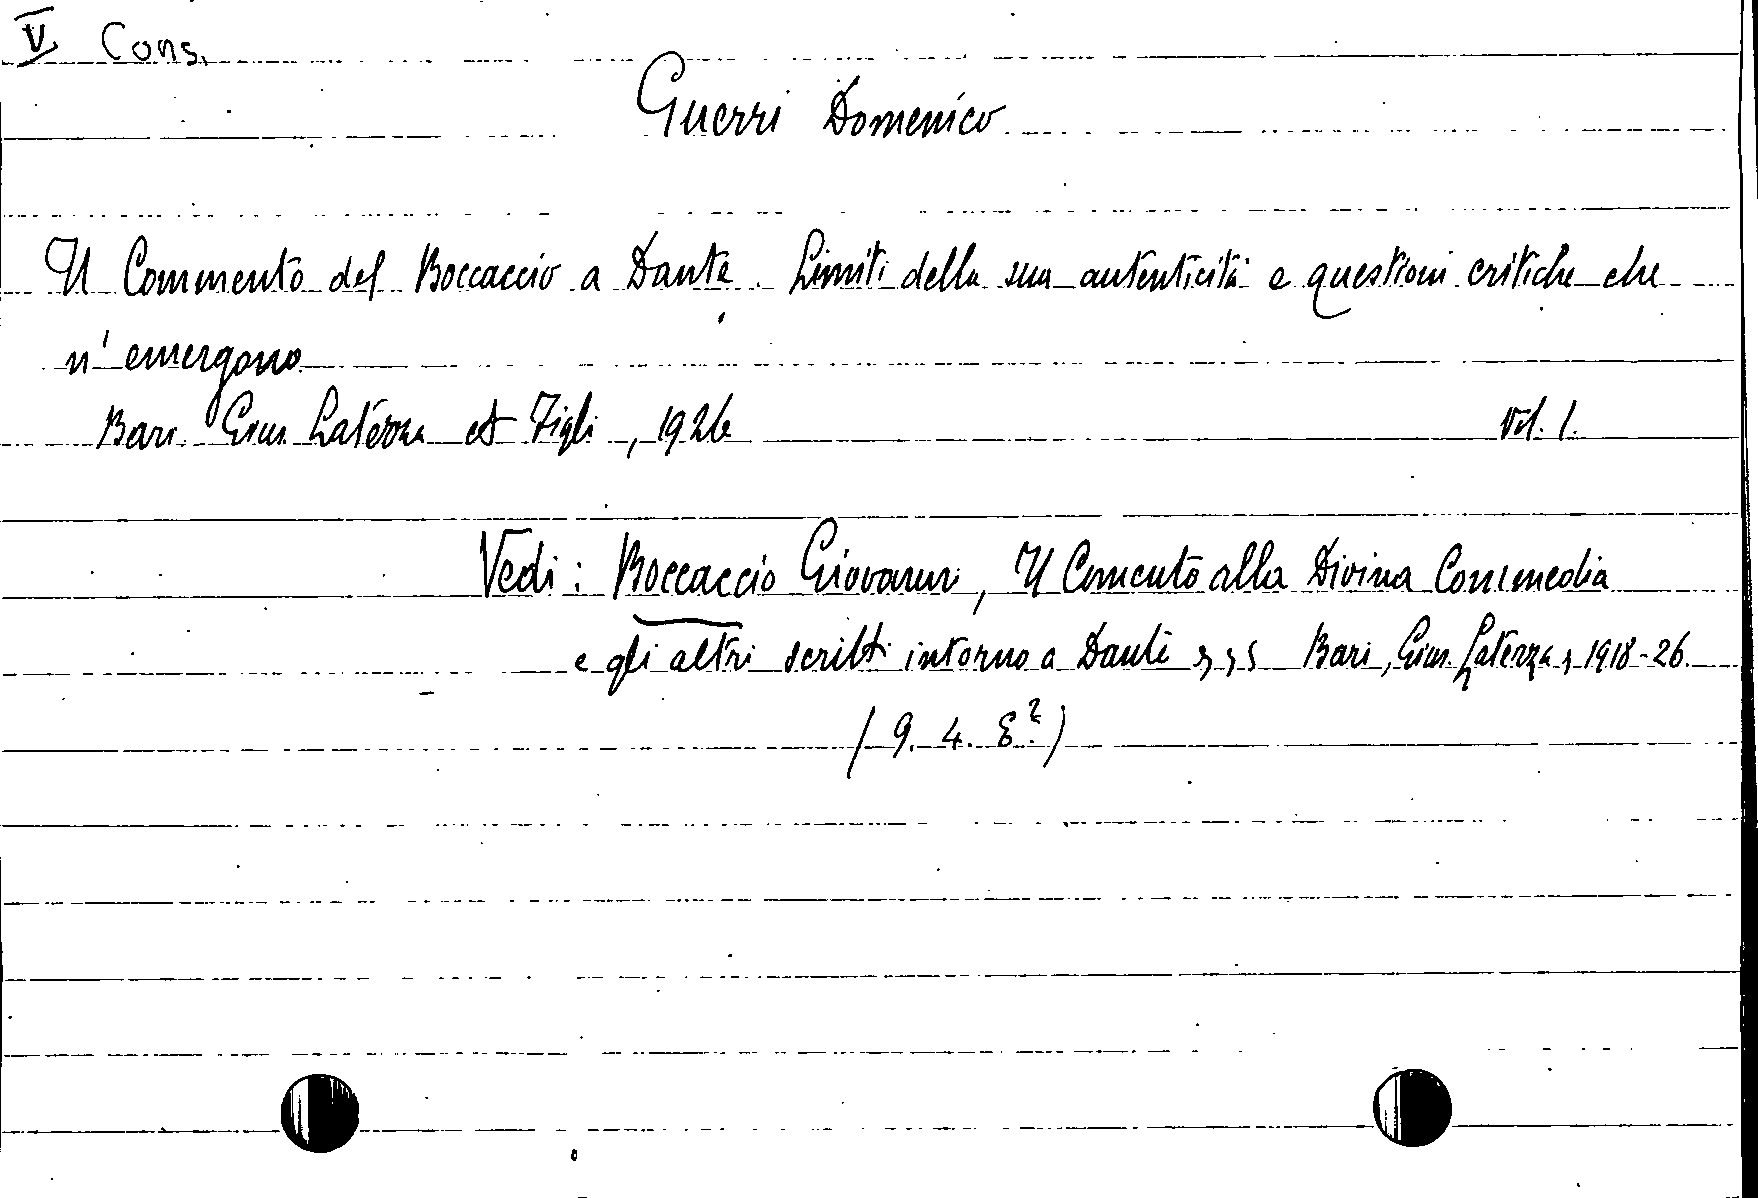 V Cons.
Guerri Domenico
Il Commento del Boccaccio a Dante. Limiti della sua autenticità e questioni critiche che
n'emergono
Bari Gius. Laterza et Figli, 1926 Vol. 1.
Vedi: Boccaccio Giovanni, Il Comento alla Divina Commedia
e gli altri scritti intorno a Dante Bari, Gius. Laterza, 1918-26.
(9. 4. 8?)